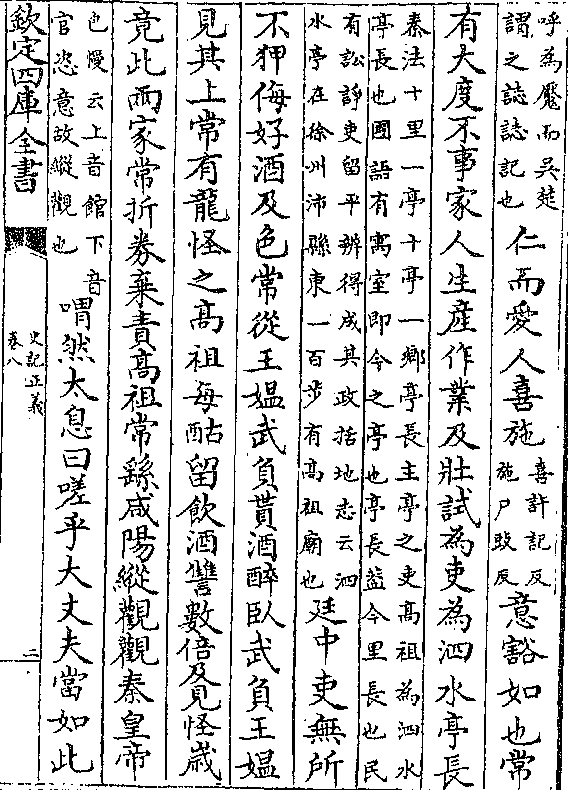 呼為黶而吳楚
謂之誌誌記也
仁而愛人喜施
喜許記反
施尸豉反
意豁如也常
有大度不事家人生産作業及壯試為吏為泗水亭長
秦法十里一亭十亭一鄉亭長主亭之吏高祖為泗水
亭長也國語有寓室即今之亭也亭長葢今里長也民
有訟諍吏留平辦得成其政括地志云泗
水亭在徐州沛縣東一百步有高祖廟也
廷中吏無所
不狎侮好酒及色常從王媪武負貰酒醉臥武負王媪
見其上常有龍怪之高祖每酤留飲酒讐數倍及見怪歳
竟此兩家常折劵棄責高祖常繇咸陽縱觀觀秦皇帝
包慢云上音館下音
官恣意故縱觀也
喟然太息曰嗟乎大丈夫當如此
欽定四庫全書
史記正義
卷八
三